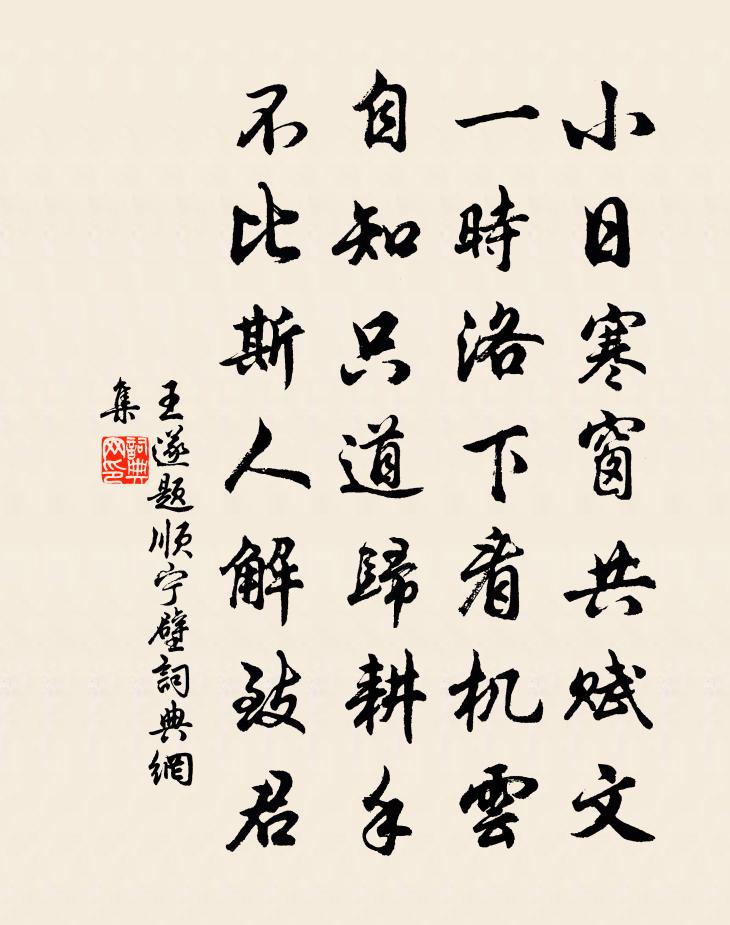 小日寒窗共赋文
一時洛下看机雲
自知只道歸耕手
不比斯人解致君
王遂题顺宁壁詞典網
集
詞典
网印